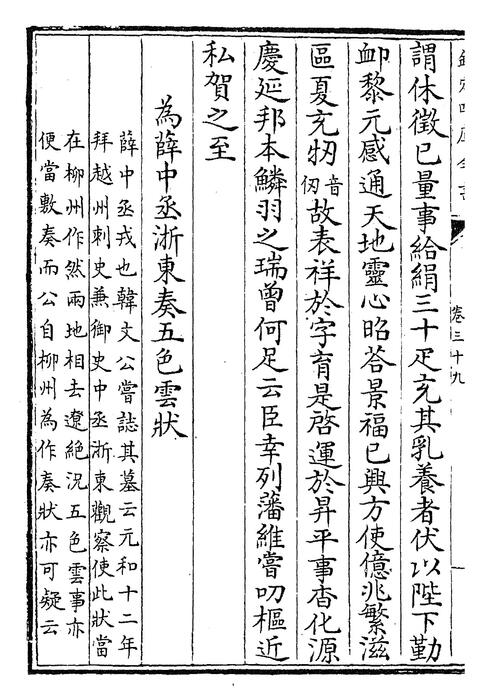 欽定四庫全書
卷三十九
謂休徵已量事給絹三十疋充其乳養者伏以陛下勤
卹黎元感通天地靈心昭荅景福已興方使億兆繁滋
區夏充牣音仞故表祥於字育是啓運於昇平事杳化源
慶延邦本鱗羽之瑞曾何足云臣幸列藩維嘗叨樞近
私賀之至
為薛中丞浙東奏五色雲狀
薛中丞戎也韓文公嘗誌其墓云元和十二年
拜越州刺史兼御史中丞浙東觀察使此狀當
在柳州作然兩地相去遼絕況五色雲事亦
便當敷奏而公自柳州為作奏狀亦可疑云